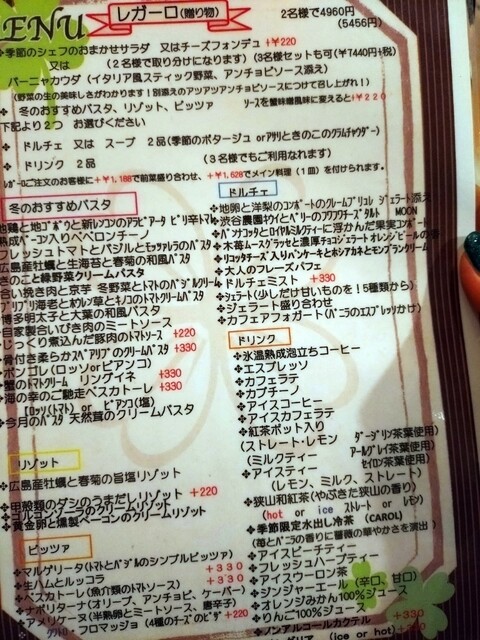 MENU
レガーロ(贈り物)
2名様で4960円
(5456円)
季節のシェフのおまかせサラダ 又はチーズフォンデュ +¥220
又は (2名様で取り分けになります) (3名様セットも可(+¥7440円+税)
バーニャカウダ (イタリア風スティック野菜、アンチョビソース添え)
(野菜の生の美味しさがわかります!別添えのアツアツアンチョビソースにつけて召し上がれ!)
冬のおすすめパスタ、リゾット、ピッツァ ソースを蟹味噌風味に変えると+¥220
下記より2つ お選びください
ドルチェ 又は スープ 2品(季節のポタージュ orアサリときのこのクラムチャウダー)
ドリンク 2品 (3名様でもご利用なれます)
レガーロご注文のお客様に+¥1,188で前菜盛り合わせ、+¥1,628でメイン料理(1皿)を付けられます。
冬のおすすめパスタ
地鶏と地ゴボウと新レンコンのアラビアータ ピリ辛トマト
熟成ベーコン入りペペロンチーノ
フレッシュトマトとバジルとモッツァレラのパスタ
広島産牡蠣と生海苔と春菊の和風パスタ
きのこと緑野菜クリームパスタ
合い挽き肉と京芋 冬野菜とトマトのバジルクリーム
プリプリ海老とホウレン草とキノコのトマトクリームパスタ
博多明太子と大葉の和風パスタ
自家製合いびき肉のミートソース
じっくり煮込んだ豚肉のトマトソース +220
骨付き柔らかスペアリブのクリームパスタ +330
ボンゴレ(ロッソorビアンコ)
蟹のトマトクリーム リングイネ +330
海の幸のご馳走ペスカトーレ +330
[ロッソ(トマト) or ビアンコ(塩)
今月のパスタ 天然茸のクリームパスタ
リゾット
広島産牡蠣と春菊の旨塩リゾット
甲殻類のダシのうまだしリゾット +220
ゴルゴンゾーラのクリームリゾット
黄金卵と燻製ベーコンのクリームリゾット
ピッツァ
マルゲリータ(トマトとバジルのシンプルピッツァ)
生ハムとルッコラ +330
ペスカトーレ(魚介類のトマトソース) +330
ナポリターナ(オリーブ、アンチョビ、ケーパー)
アメリケーヌ(半熟卵とミートソース、唐辛子)
クワトロ・フロマッジョ(4種のチーズのピザ) +220
ドルチェ
地卵と洋梨のコンポートのクレームブリュレ ジェラート添え
渋谷農園キウイとベリーのフワフワチーズタルト MOON
パンナコッタとロイヤルミルクティーに浮かんだ果実コンポート
木苺ムースグラッセと濃厚チョコジェラート オレンジピールの香
リコッタチーズ入りパンケーキとホシアカネとモンブランクリーム
大人のフレーズパフェ
ドルチェミスト +330
ジェラート(少しだけ甘いものを!5種類から)
ジェラート盛り合わせ
カフェアフォガート(バニラのエスプレッソがけ)
ドリンク
氷温熟成泡立ちコーヒー
エスプレッソ
カフェラテ
カプチーノ
アイスコーヒー
アイスカフェラテ
紅茶ポット入り
(ストレート・レモン ダージリン茶葉使用)
(ミルクティー アールグレイ茶葉使用)
アイスティー セイロン茶葉使用)
(レモン、ミルク、ストレート)
狭山和紅茶(やぶきた狭山の香り)
(hot or ice ストレート or レモン)
季節限定水出し冷茶 (CAROL)
(苺とバニラの香りに薔薇の華やかさを演出)
アイスピーチティー
フレッシュハーブティー
アイスウーロン茶
ジンジャーエール (辛口、甘口)
オレンジみかん100%ジュース
りんご100%ジュース
ノンアルコールカクテル +330
(ice or hot) +330